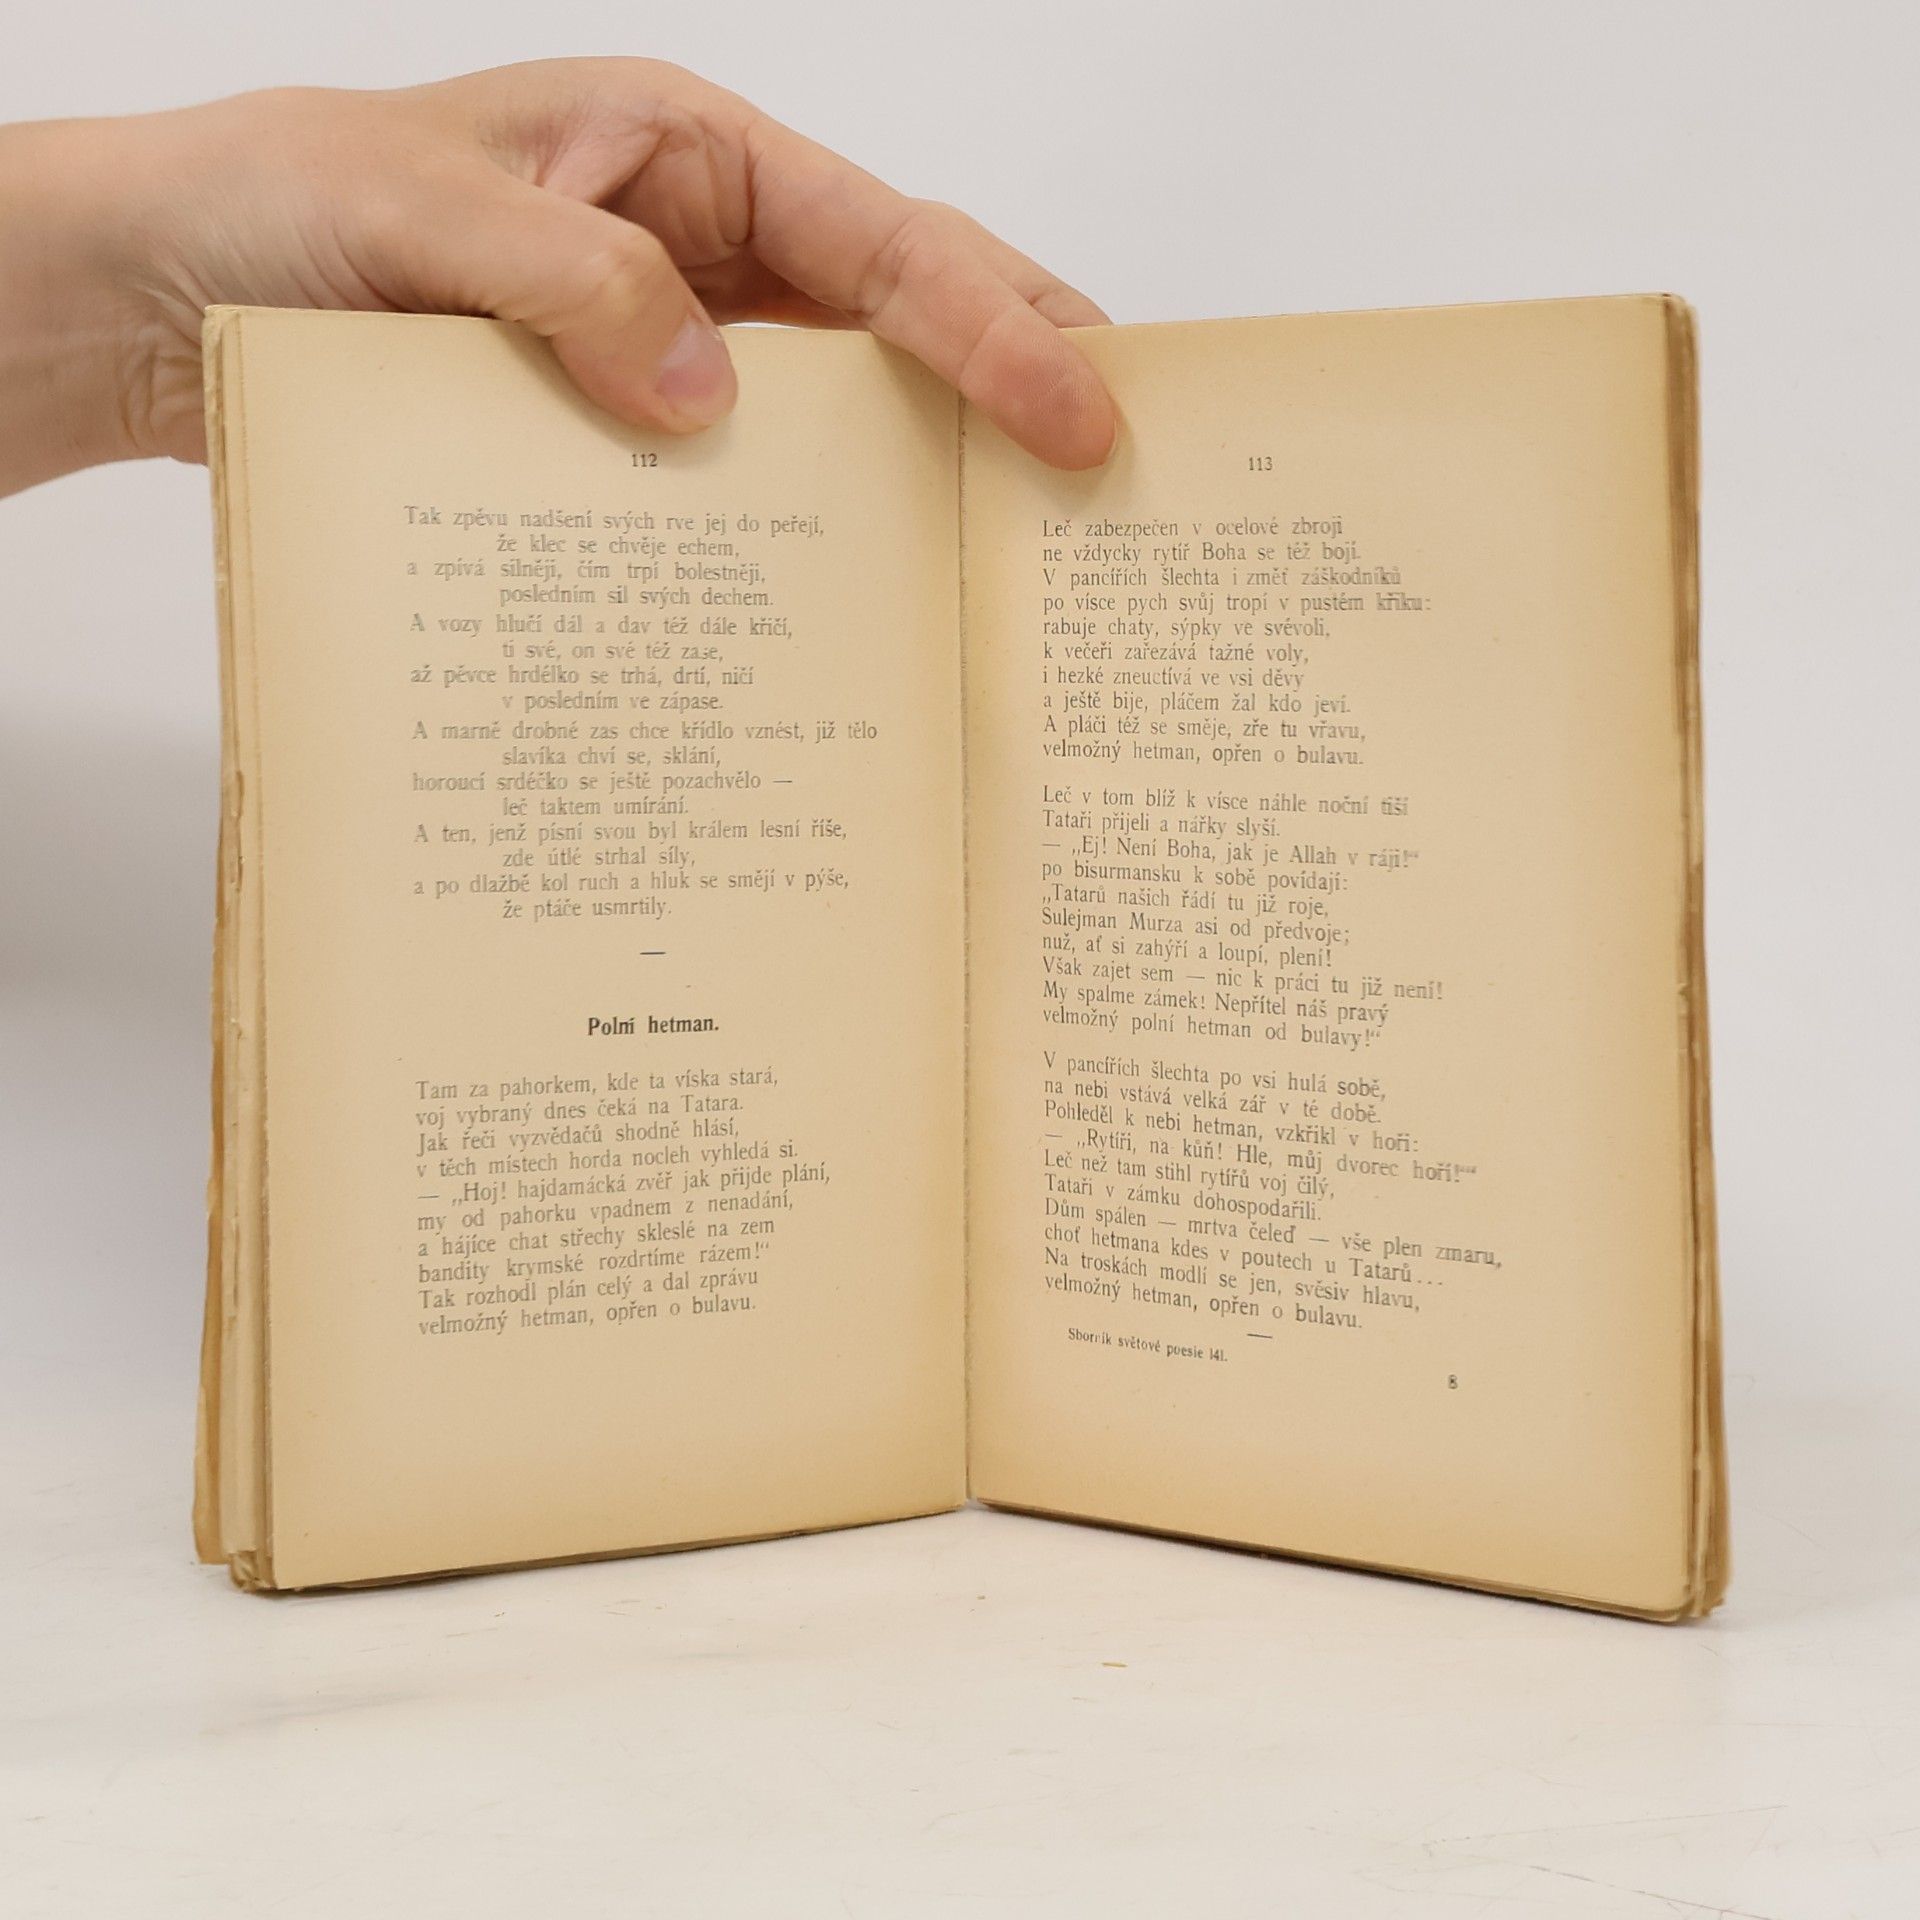 112
Tak zpěvu nadšení svých rve jej do peřejí,
že klec se chvěje echem,
a zpívá silněji, čím trpí bolestněji,
posledním sil svých dechem.
A vozy hlučí dál a dav též dále křičí,
ti své, on své též zase,
až pěvce hrdélko se trhá, drtí, ničí
v posledním ve zápase.
A marně drobné zas chce křídlo vznést, již tělo
slavíka chví se, sklání,
horoucí srdéčko se ještě pozachvělo —
leč taktem umírání.
A ten, jenž písní svou byl králem lesní říše,
zde útlé strhal síly,
a po dlažbě kol ruch a hluk se smějí v pýše,
že ptáče usmrtily.
—
Polní hetman.
Tam za pahorkem, kde ta víska stará,
voj vybraný dnes čeká na Tatara.
Jak řeči vyzvědačů shodně hlásí,
v těch místech horda nocleh vyhledá si.
— „Hoj! hajdamácká zvěř jak přijde plání,
my od pahorku vpadnem z nenadání,
a hájíce chat střechy skleslé na zem
bandity krymské rozdrtíme rázem!“
Tak rozhodl plán celý a dal zprávu
velmožný hetman, opřen o bulavu.
113
Leč zabezpečen v ocelové zbroji
ne vždycky rytíř Boha se též bojí.
V pancířích šlechta i změť záškodníků
po vísce pych svůj tropí v pustém křiku:
rabuje chaty, sýpky ve svévoli,
k večeři zařezává tažné voly,
i hezké zneuctívá ve vsi děvy
a ještě bije, pláčem žal kdo jeví.
A pláči též se směje, zře tu vřavu,
velmožný hetman, opřen o bulavu.
Leč v tom blíž k vísce náhle noční tiší
Tataři přijeli a nářky slyší.
— „Ej! Není Boha, jak je Allah v ráji!“
po bisurmansku k sobě povídají:
„Tatarů našich řádí tu již roje,
Sulejman Murza asi od předvoje;
nuž, ať si zahýří a loupí, plení!
Však zajet sem — nic k práci tu již není!
My spalme zámek! Nepřítel náš pravý
velmožný polní hetman od bulavy!“
V pancířích šlechta po vsi hulá sobě,
na nebi vstává velká zář v té době.
Pohleděl k nebi hetman, vzkřikl v hoři:
— „Rytíři, na kůň! Hle, můj dvorec hoří!“
Leč než tam stihl rytířů voj čilý,
Tataři v zámku dohospodařili.
Dům spálen — mrtva čeleď — vše plen zmaru,
choť hetmana kdes v poutech u Tatarů...
Na troskách modlí se jen, svěsiv hlavu,
velmožný hetman, opřen o bulavu.
—
Sborník světové poesie 141.
8